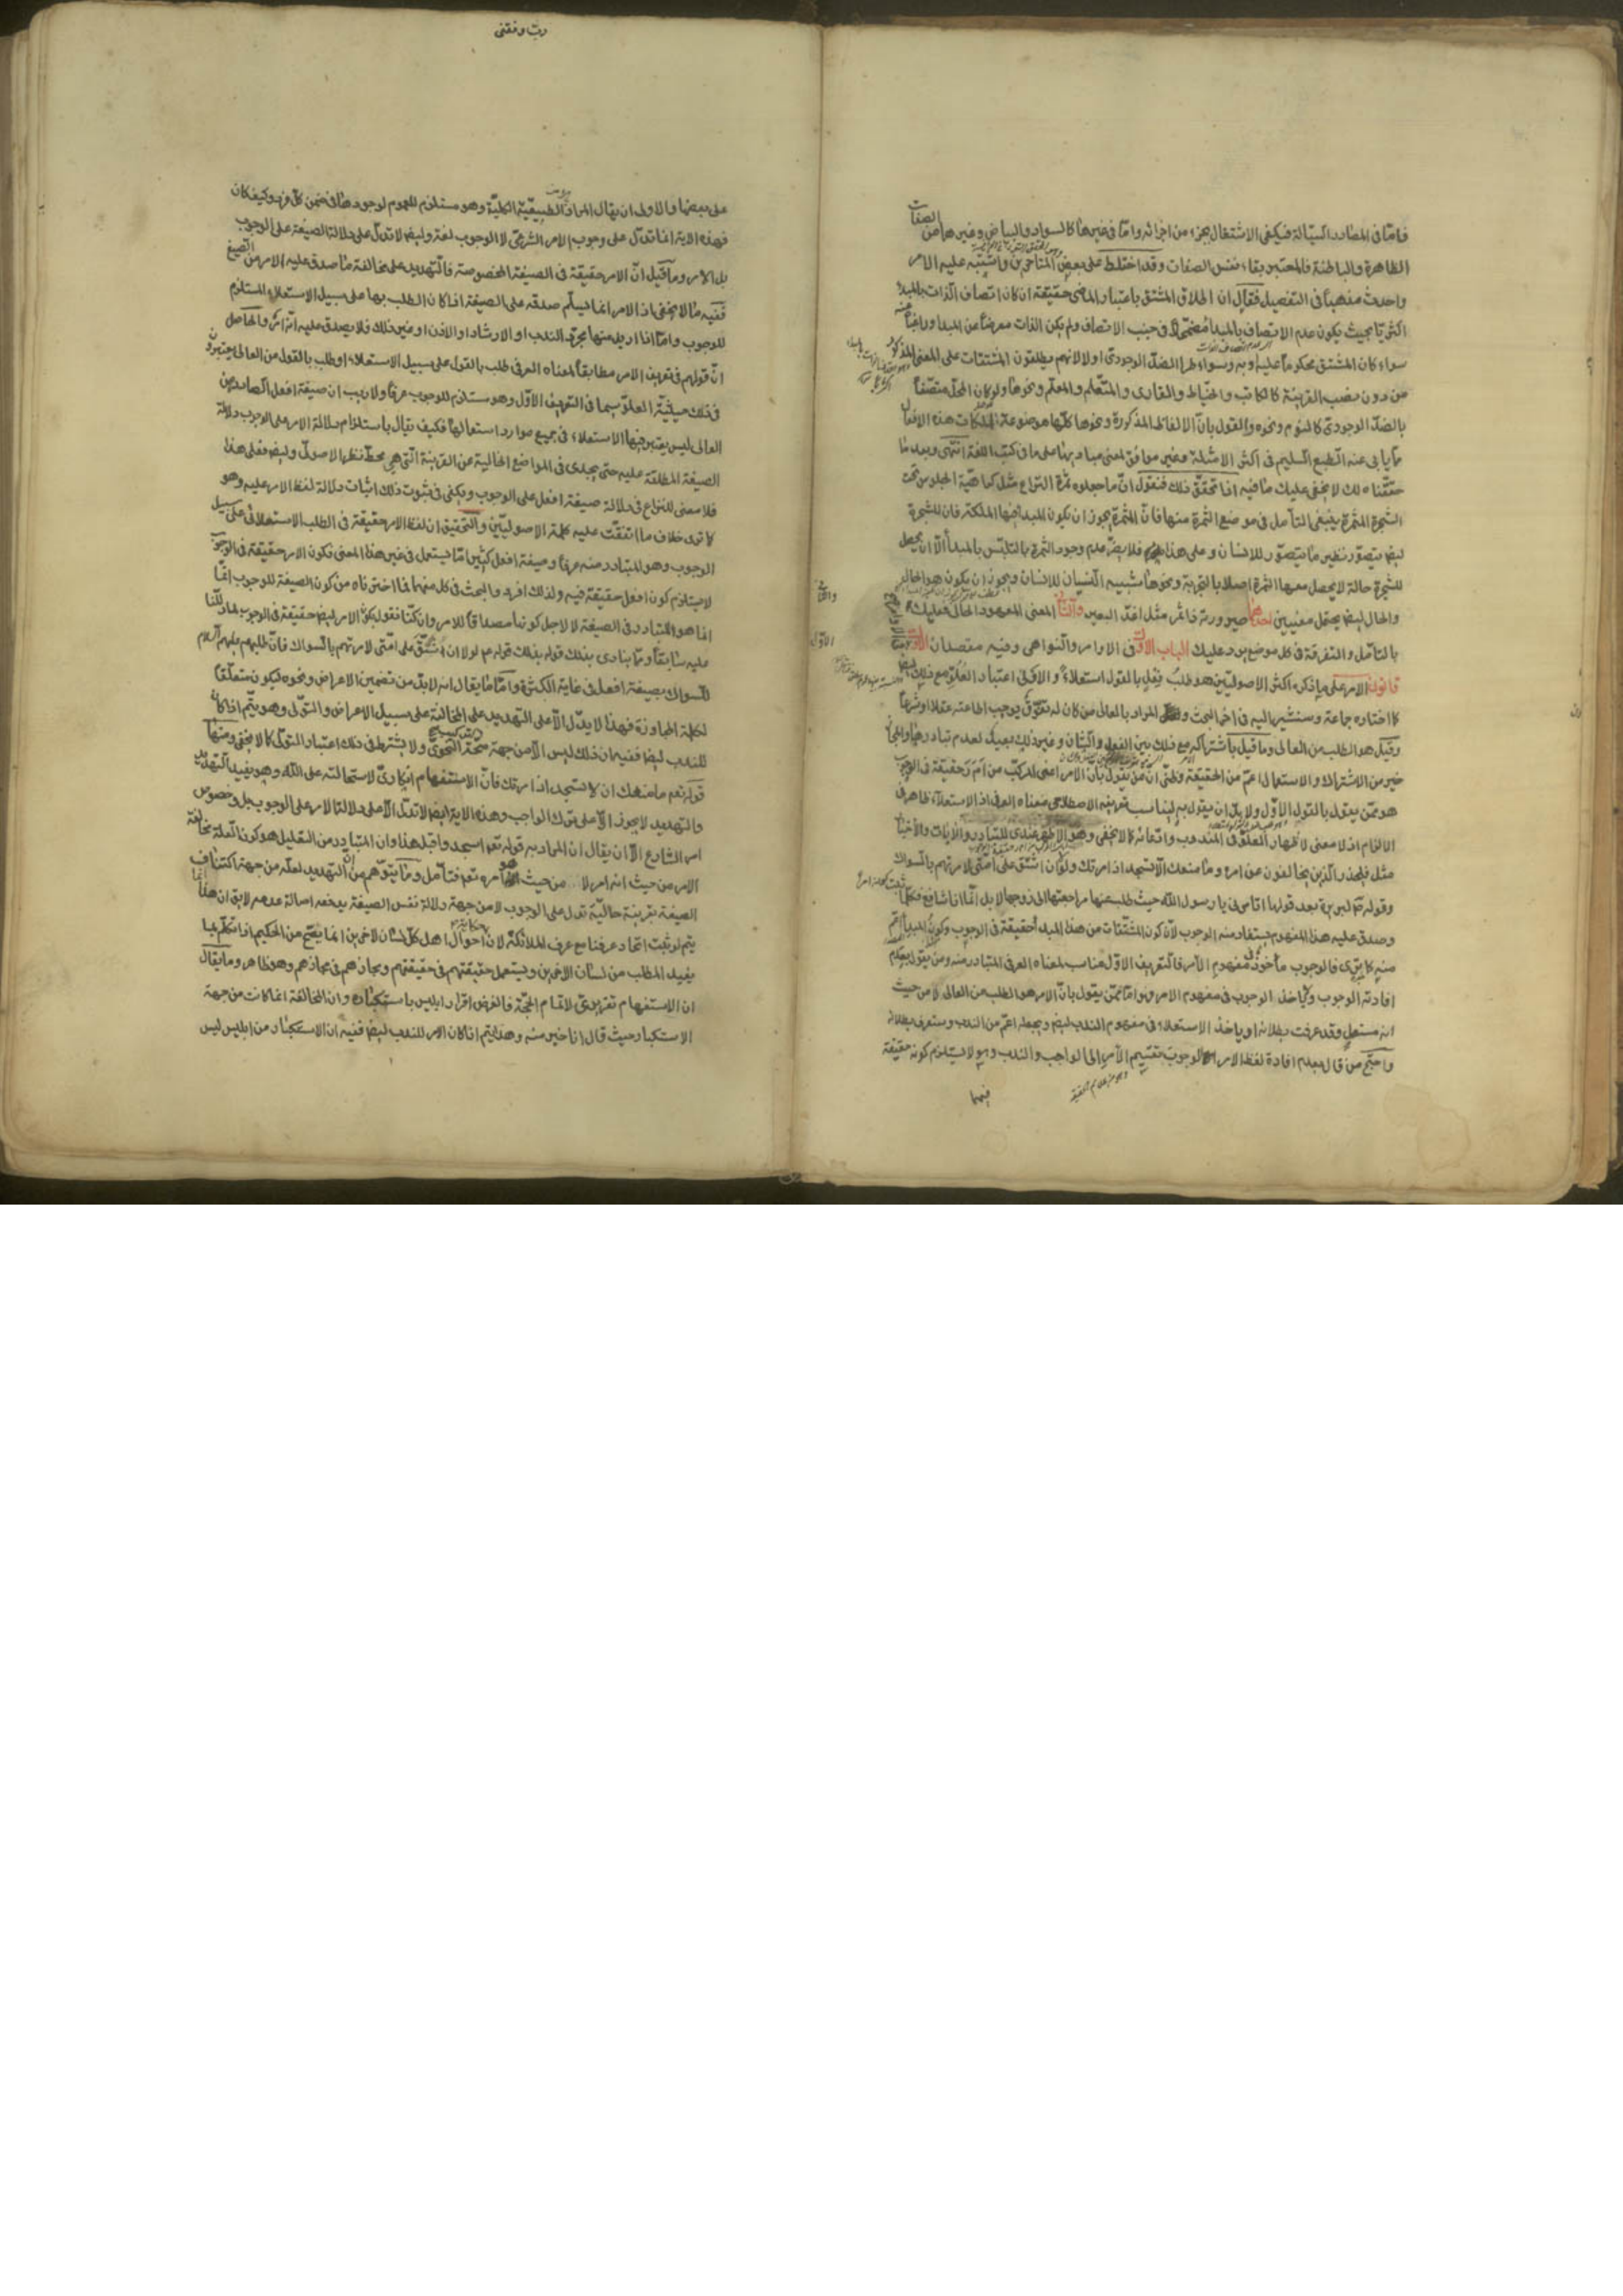 فامّا فى المصادر السّيّالة فيكفى الاشتغال بجزء من اجزائه وامّا فى غيرها كالسواد والبياض وغيرهما من الصفات
الظاهرة والباطنة فالمعتبر بقاء نفس الصفات وقد اختلط على بعض المتأخرين واشتبه عليه الامر
واحدث مذهباً فى التفصيل فقال ان اطلاق المشتق باعتبار الماضى حقيقة ان كان اتصاف الذات بالمبدء
اكثريّا بحيث يكون عدم الاتصاف بالمبدء مضمحلّا فى جنب الاتصاف ولم يكن الذات معرضاً عن المبدء وراغباً عنه
سواء كان المشتق محكوماً عليه او به وسواء طرء الضدّ الوجودى او لا لانهم يطلقون المشتقات على المعنى المذكور
من دون نصب القرينة كالكاتب والخيّاط والقارى والمتعلّم والمعلّم ونحوها ولو كان المحلّ متصفاً
بالضدّ الوجودى كالنوم ونحوه والقول بانّ الالفاظ المذكورة ونحوها كلّها موضوعة لملكات هذه الافعال
ممّا يأبى عنه الطبع السليم فى اكثر الامثلة وغير موافق لمعنى مباديها على ما فى كتب اللغة انتهى وبعد ما
حقّقناه لك لا يخفى عليك ما فيه اذا تحقق ذلك فنقول انّ ما جعلوه ثمرة النزاع مثل كراهيّة الجلوس تحت
الشجرة المثمرة ينبغى التأمل فى موضع الثمرة منها فانّ المثمرة يجوز ان يكون المبدء فيها الملكة فان للشجرة
ايضا يتصوّر نظير ما يتصوّر للانسان وعلى هذا فلا يضرّ عدم وجود الثمرة بالتلبّس بالمبدأ الّا ان يحصل
للشجرة حالة لا يحصل معها الثمرة اصلا بالتجربة ونحوها شبيه النسيان للانسان ويجوز ان يكون هو الحال
والحال ايضا يحتمل معنيين احدهما صيرورته ذا ثمر مثل اغدّ البعير والثانى المعنى المعهود الحالى فعليك
بالتأمّل والتفرقة فى كل موضع يرد عليك الباب الاوّل فى الاوامر والنواهى وفيه مقصدان الاوّل
قانون الامر على ما ذكره اكثر الاصوليّين هو طلب فعل بالقول استعلاءً والاولى اعتبار العلوّ مع ذلك ايضا
كما اختاره جماعة وسنشير اليه فى اخر المبحث و المراد بالعالى من كان له تفوّق يوجب اطاعته عقلا او شرعاً
وقيل هو الطلب من العالى وما قيل باشتراكه مع ذلك بين الفعل والشان وغير ذلك بعيد لعدم تبادرها والمجاز
خير من الاشتراك والاستعمال اعمّ من الحقيقة وظنّى انّ من يقول بانّ الامر اعنى المركّب من ا م ر حقيقة فى الوجوب
هو ممّن يقول بالقول الاوّل ولا بدّ ان يقول به ليناسب تعريفه الاصطلاحى معناه العرفى اذ الاستعلاء ظاهر فى
الالزام اذ لا معنى لاظهار العلوّ فى المندوب وادّعائه كما لا يخفى وهو الاظهر عندى للتبادر والايات والاخبار
مثل فليحذر الذين يخالفون عن امره وما منعك الّا تسجد اذ امرتك ولولا ان اشقّ على امّتى لامرتهم بالسواك
وقوله لبريرة بعد قولها اتأمرنى يا رسول اللّه حيث طلب عنها مراجعتها الى زوجها لا بل انّما انا شافع فكلّما
وصدق عليه هذا المفهوم يستفاد منه الوجوب لانّ كون المشتقات من هذا المبدء حقيقة فى الوجوب وكون المبدء اعمّ
منه كما ترى فالوجوب مأخوذ فى مفهوم الامر فالتعريف الاوّل مناسب لمعناه العرفى المتبادر منه ومن يقول بعدم
افادته الوجوب ولا ياخذ الوجوب فى مفهوم الامر هو امّا ممّن يقول بانّ الامر هو الطلب من العالى لا من حيث
انه مستعل وقد عرفت بطلانه او ياخذ الاستعلاء فى مفهوم الندب ايضا ويجعله اعمّ من الندب وستعرف بطلانه
واحتجّ من قال بعدم افادة لفظ الامر الوجوب تقسيم الامر الى الواجب والندب وهو لا يستلزم كونه حقيقة
فيهما
ربّ وفقنى
على بعضها والاولى ان يقال المراد الطبيعيّة الكليّة وهو مستلزم للعموم لوجودها فى ضمن كلّ فرد وكيف كان
فهذه الاية انّما تدلّ على وجوب الامر الشرعىّ لا الوجوب لغة وايضا لا تدلّ على دلالة الصيغة على الوجوب
بل الامر وما قيل انّ الامر حقيقة فى الصيغة المخصوصة فالتهديد على مخالفة ما صدق عليه الامر من الصيغ
ففيه ما لا يخفى اذ الامر انما يسلّم صدقه على الصيغة اذا كان الطلب بها على سبيل الاستعلاء المستلزم
للوجوب وامّا اذا اريد منها مجرّد الندب او الارشاد او الاذن او غير ذلك فلا يصدق عليه انّه امر والحاصل
انّ قولهم فى تعريف الامر مطابقاً لمعناه العرفى طلب بالقول على سبيل الاستعلاء او طلب بالقول من العالى يعتبرون
فى ذلك حيثيّة العلوّ سيما فى التعريف الاوّل وهو مستلزم للوجوب عرفاً ولا ريب ان صيغة افعل الصادر عن
العالى ليس يعتبر فيها الاستعلاء فى جميع موارد استعمالها فكيف يقال باستلزام دلالة الامر على الوجوب دلالة
الصيغة المطلقة عليه حتى يجدى فى المواضع الخالية عن القرينة الّتى هى محطّ نظر الاصولى وايضا فعلى هذا
فلا معنى للنزاع فى دلالة صيغة افعل على الوجوب ويكفى فى ثبوت ذلك اثبات دلالة لفظ الامر عليه وهو
كما ترى خلاف ما اتفقت عليه كلمة الاصوليّين والتحقيق ان لفظ الامر حقيقة فى الطلب الاستعلائى على سبيل
الوجوب وهو المتبادر منه عرفاً وصيغة افعل كثيرا ما يستعمل فى غير هذا المعنى فكون الامر حقيقة فى الوجوب
لا يستلزم كون افعل حقيقة فيه ولذلك افرد والبحث فى كل منهما فما اخترناه من كون الصيغة للوجوب انّما
انما هو المتبادر فى الصيغة لا لاجل كونها مصداقا للامر وان كنّا نقول بكون الامر ايضا حقيقة فى الوجوب لما دللنا
عليه سابقاً وممّا ينادى بذلك قوله ص لولا ان اشقّ على امّتى لامرتهم بالسواك فانّ طلبهم عليهم السلام
للسواك بصيغة افعل فى غاية الكثرة وامّا ما يقال انه لا بدّ من تضمين الاعراض ونحوه ليكون متعلّقا
لكلمة المجاوزة فهذا لا يدلّ الّا على التهديد على المخالفة على سبيل الاعراض والتولّى وهو يتّم اذا كان
للندب ايضا ففيه ان ذلك ليس الّا من جهة صحّة التركيب النحوى ولا يشترط فى ذلك اعتبار التولّى كما لا يخفى ومنها
قوله تعم ما منعك ان لا تسجد اذ امرتك فانّ الاستفهام انكارى لاستحالته على اللّه وهو يفيد التهديد
والتهديد لا يجوز الّا على ترك الواجب وهذه الاية ايضا لا تدلّ الّا على دلالة الامر على الوجوب بل وخصوص
امر الشارع الّا ان يقال ان المراد به قوله تعم اسجدوا قبل هذا وان المتبادر من التعليل هو كون العلّة مخالفة
الامر من حيث انه امر لا من حيث هو امره تعم فتأمل وما يتوهّم من ان التهديد لعلّه من جهة اكتناف
الصيغة بقرينة حاليّة تدل على الوجوب لا من جهة دلالة نفس الصيغة يدفعه اصالة عدمه لا يق ان هذا انما
يتم لو ثبت اتحاد عرفنا مع عرف الملائكة لانّ حكاية احوال اهل كلّ لسان لاخرين انما يصحّ من الحكيم اذا تكلّم بما
يفيد المطلب من لسان الاخرين ويستعمل حقيقتهم فى حقيقتهم ومجازهم فى مجازهم وهو ظاهر وما يقال
ان الاستفهام تقريرىّ لاتمام الحجّة فالغرض اقرار ابليس باستكباره وان المخالفة انما كانت من جهة
الاستكبار حيث قال انا خير منه وهذا يتم اذا كان الامر للندب ايضا ففيه ان الاستكبار من ابليس ليس